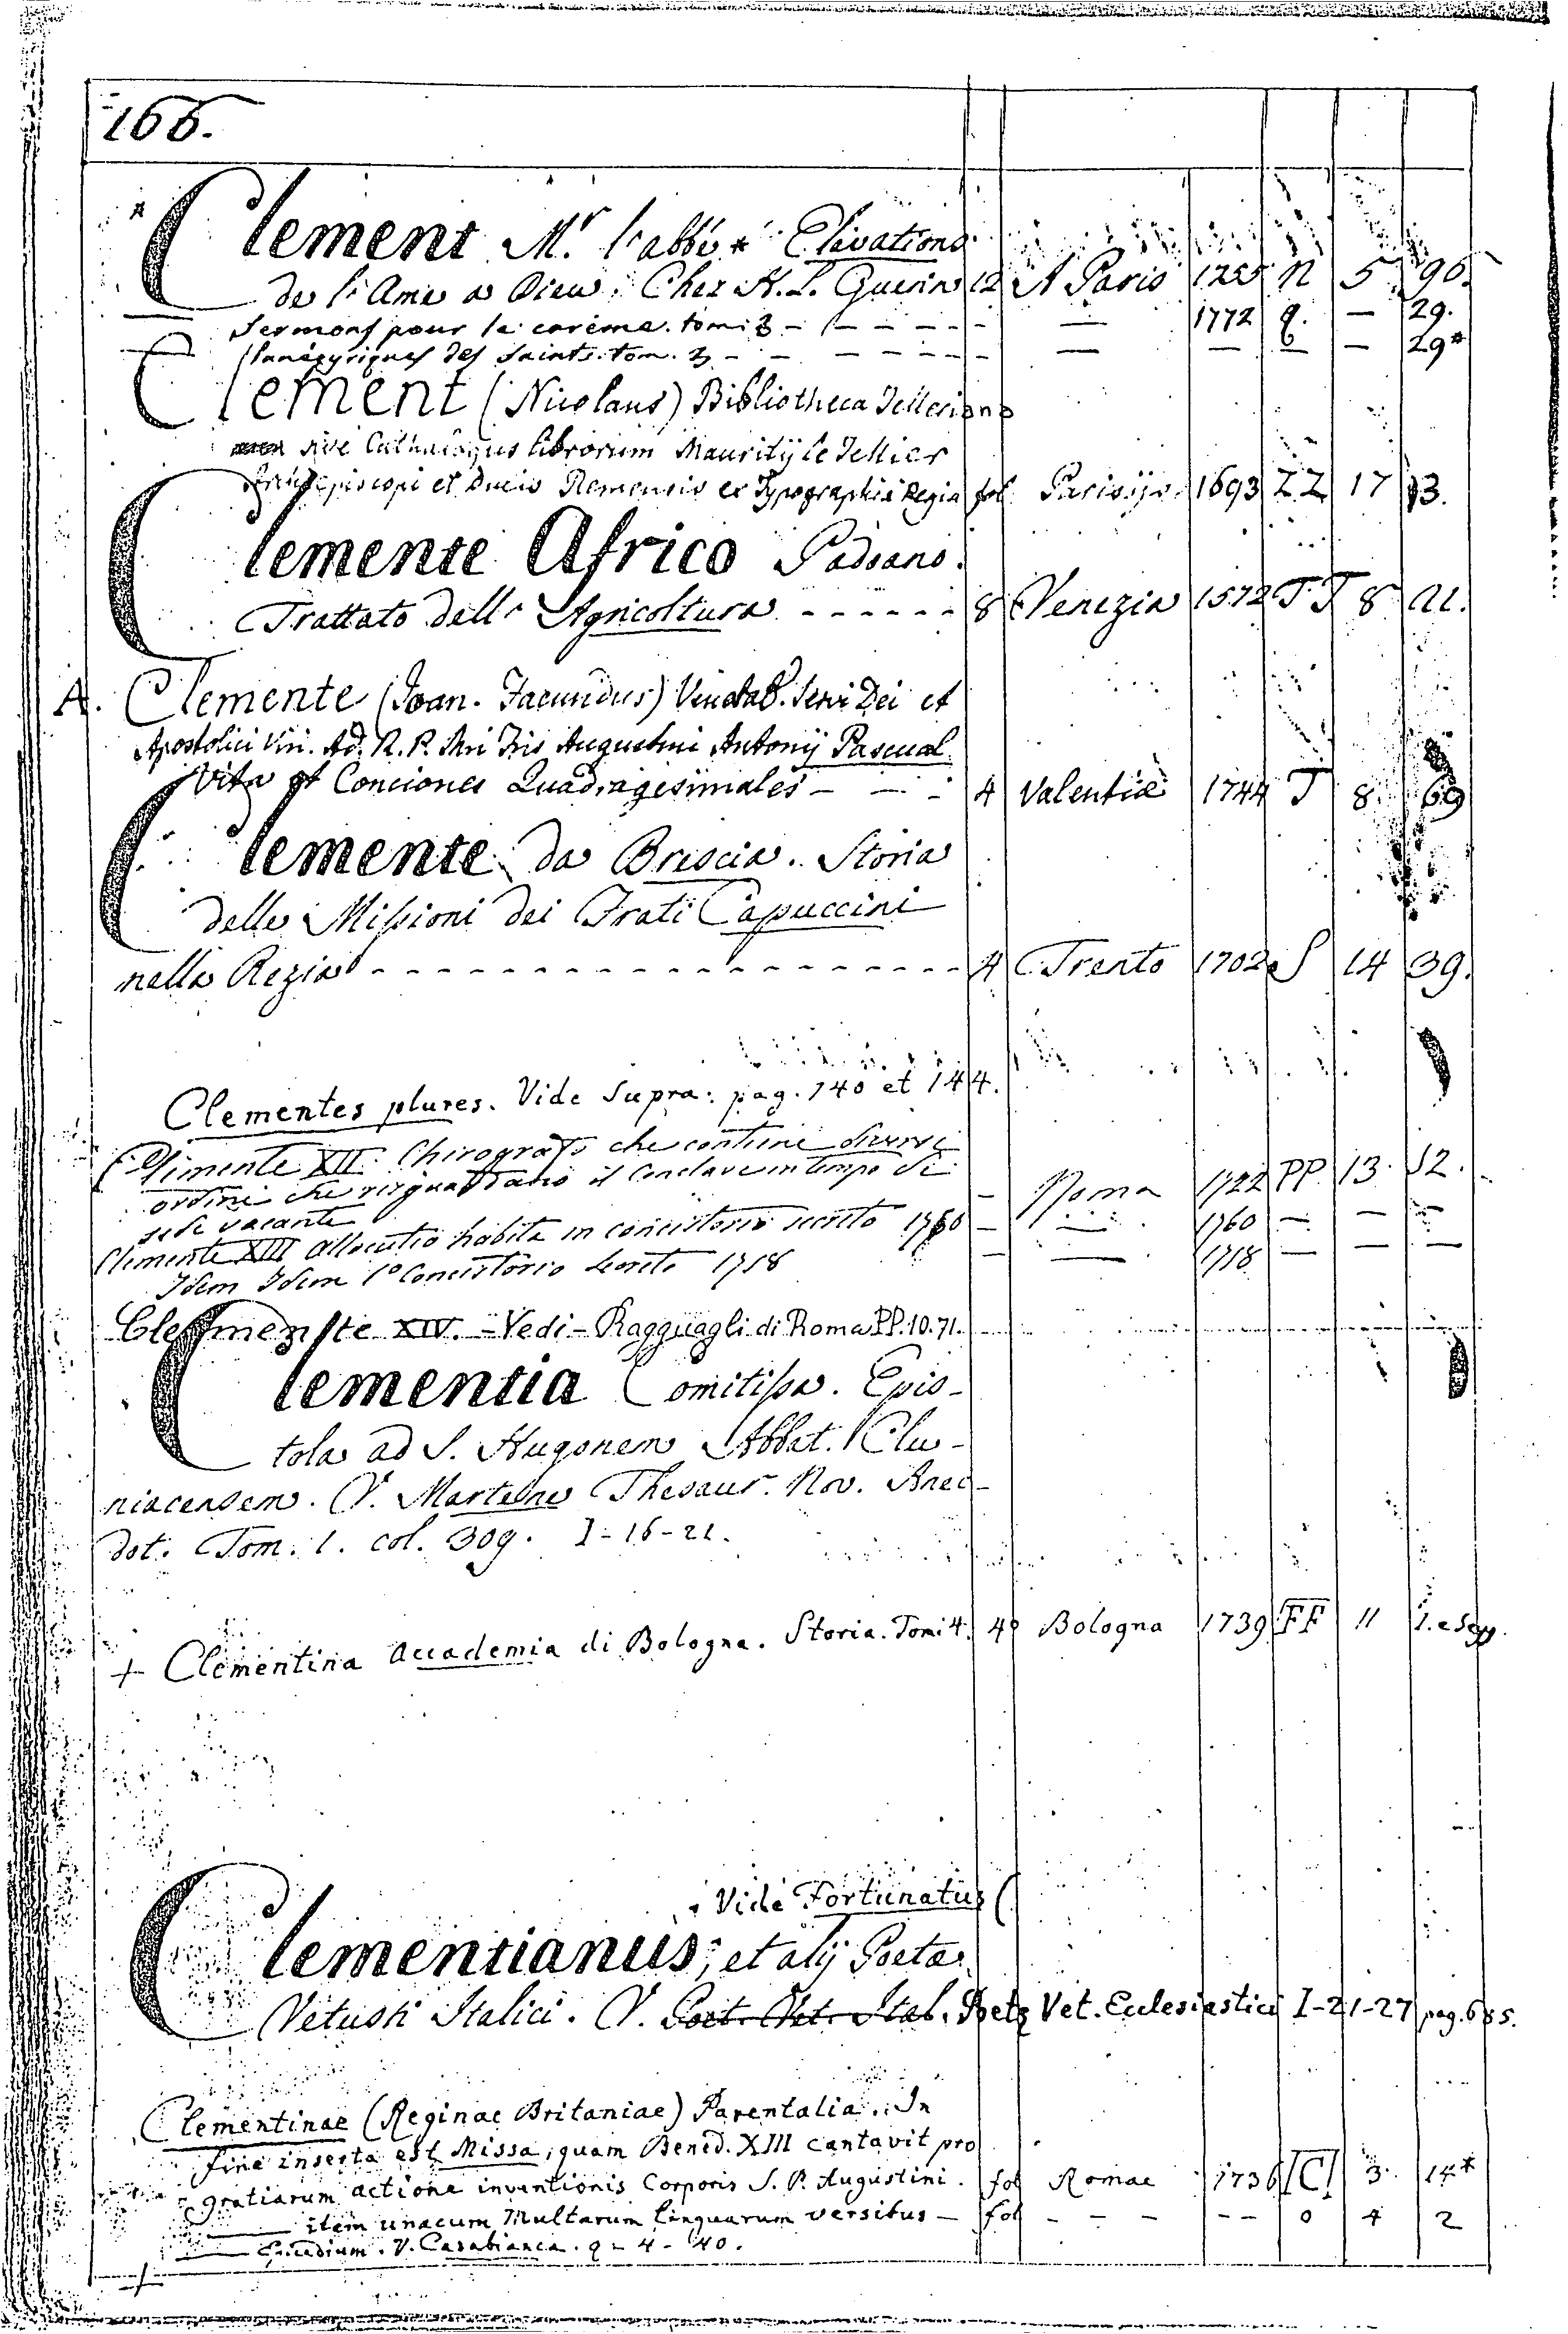 166.
Clement Mr. l'abbé * Elevations
de l'Ame a Dieu. Chez H. L. Guerin 12 A Paris N 5 96.
Sermons pour le carême. tom: 3 - - - - - - — 1772 q. — 29.
— Panégyriques des Saints. tom. 3 - - - - - - - — — 6 — 29*
Clement (Nicolaus) Bibliotheca Telleriana
sive Cathalogus librorum Mauritij le Tellier
Archiepiscopi et Ducis Remensis ex Typographia Regia fol Parisijs. 1693 ZZ 17 13.
Clemente Africo Padoano.
Trattato dell' Agricoltura - - - - - - 8 Venezia 1572 TT 8 21.
A. Clemente (Joan. Facundus) Venerab. Servi Dei et
Apostolici Viri. Ad. R. P. Mri Fris Augustini Antonij Pascual
Vita et Conciones Quadragesimales - - - 4 Valentiæ 1744 T 8 69
Clemente da Brescia. Storia
delle Missioni dei Frati Capuccini
nella Rezia - - - - - - - - - - - - - - - - - - 4 Trento 1702 S 14 39.
Clementes plures. Vide Supra: pag. 140 et 144.
Clemente XII. Chirografo che contiene diversi
ordini che risguardano il Conclave in tempo di
sede vacante — Roma 1722 PP. 13. 12.
Clemente XIII Allocutio habita in concistorio secreto 1760 — — 1760 — — —
Idem Idem 1º Concistorio secreto 1758 — — 1758 — — —
Clemente XIV. - Vedi - Ragguagli di Roma PP. 10. 71.
Clementia Comitissa. Epis-
tola ad S. Hugonem Abbat. Clu-
niacensem. V. Martene Thesaur. Nov. Anec-
dot. Tom. 1. col. 309. I - 16 - 21.
+ Clementina Accademia di Bologna. Storia. Tomi 4. 4º Bologna 1739 FF 11 1. e segg.
Vide Fortunatus (
Clementianus; et alij Poetæ
Vetusti Italici. V. Poet. Vet. Ital. Poetæ Vet. Eclesiastici I - 21 - 27 pag. 685.
Clementinae (Reginae Britaniae) Parentalia. In
fine inserta est Missa, quam Bened. XIII cantavit pro
gratiarum actione inventionis Corporis S. P. Augustini. fol Romae 1736 [C] 3. 14*
— item unacum Multarum linguarum versibus — fol - - - - - 0 4 2
— Epicedium. V. Casabianca. q - 4 - 40.
+